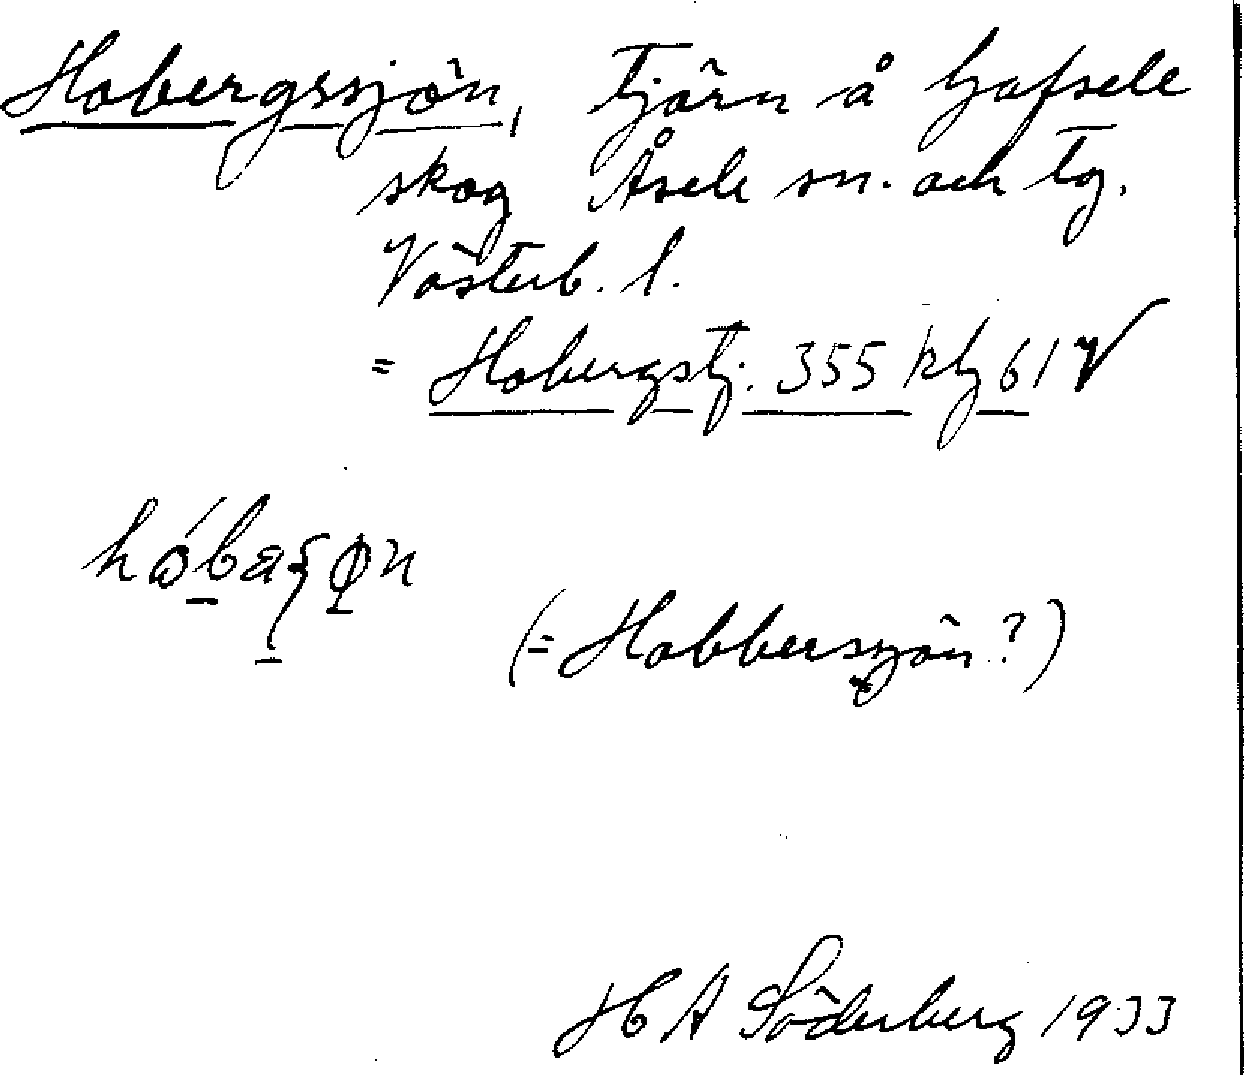 Hobergssjön, Tjärn å Gafsele
skog Åsele sn. och tg.
Västerb. l.
= Hobergstj. 355 kbl 61 V
(= Hobbersjön?)
H A Söderberg 1933